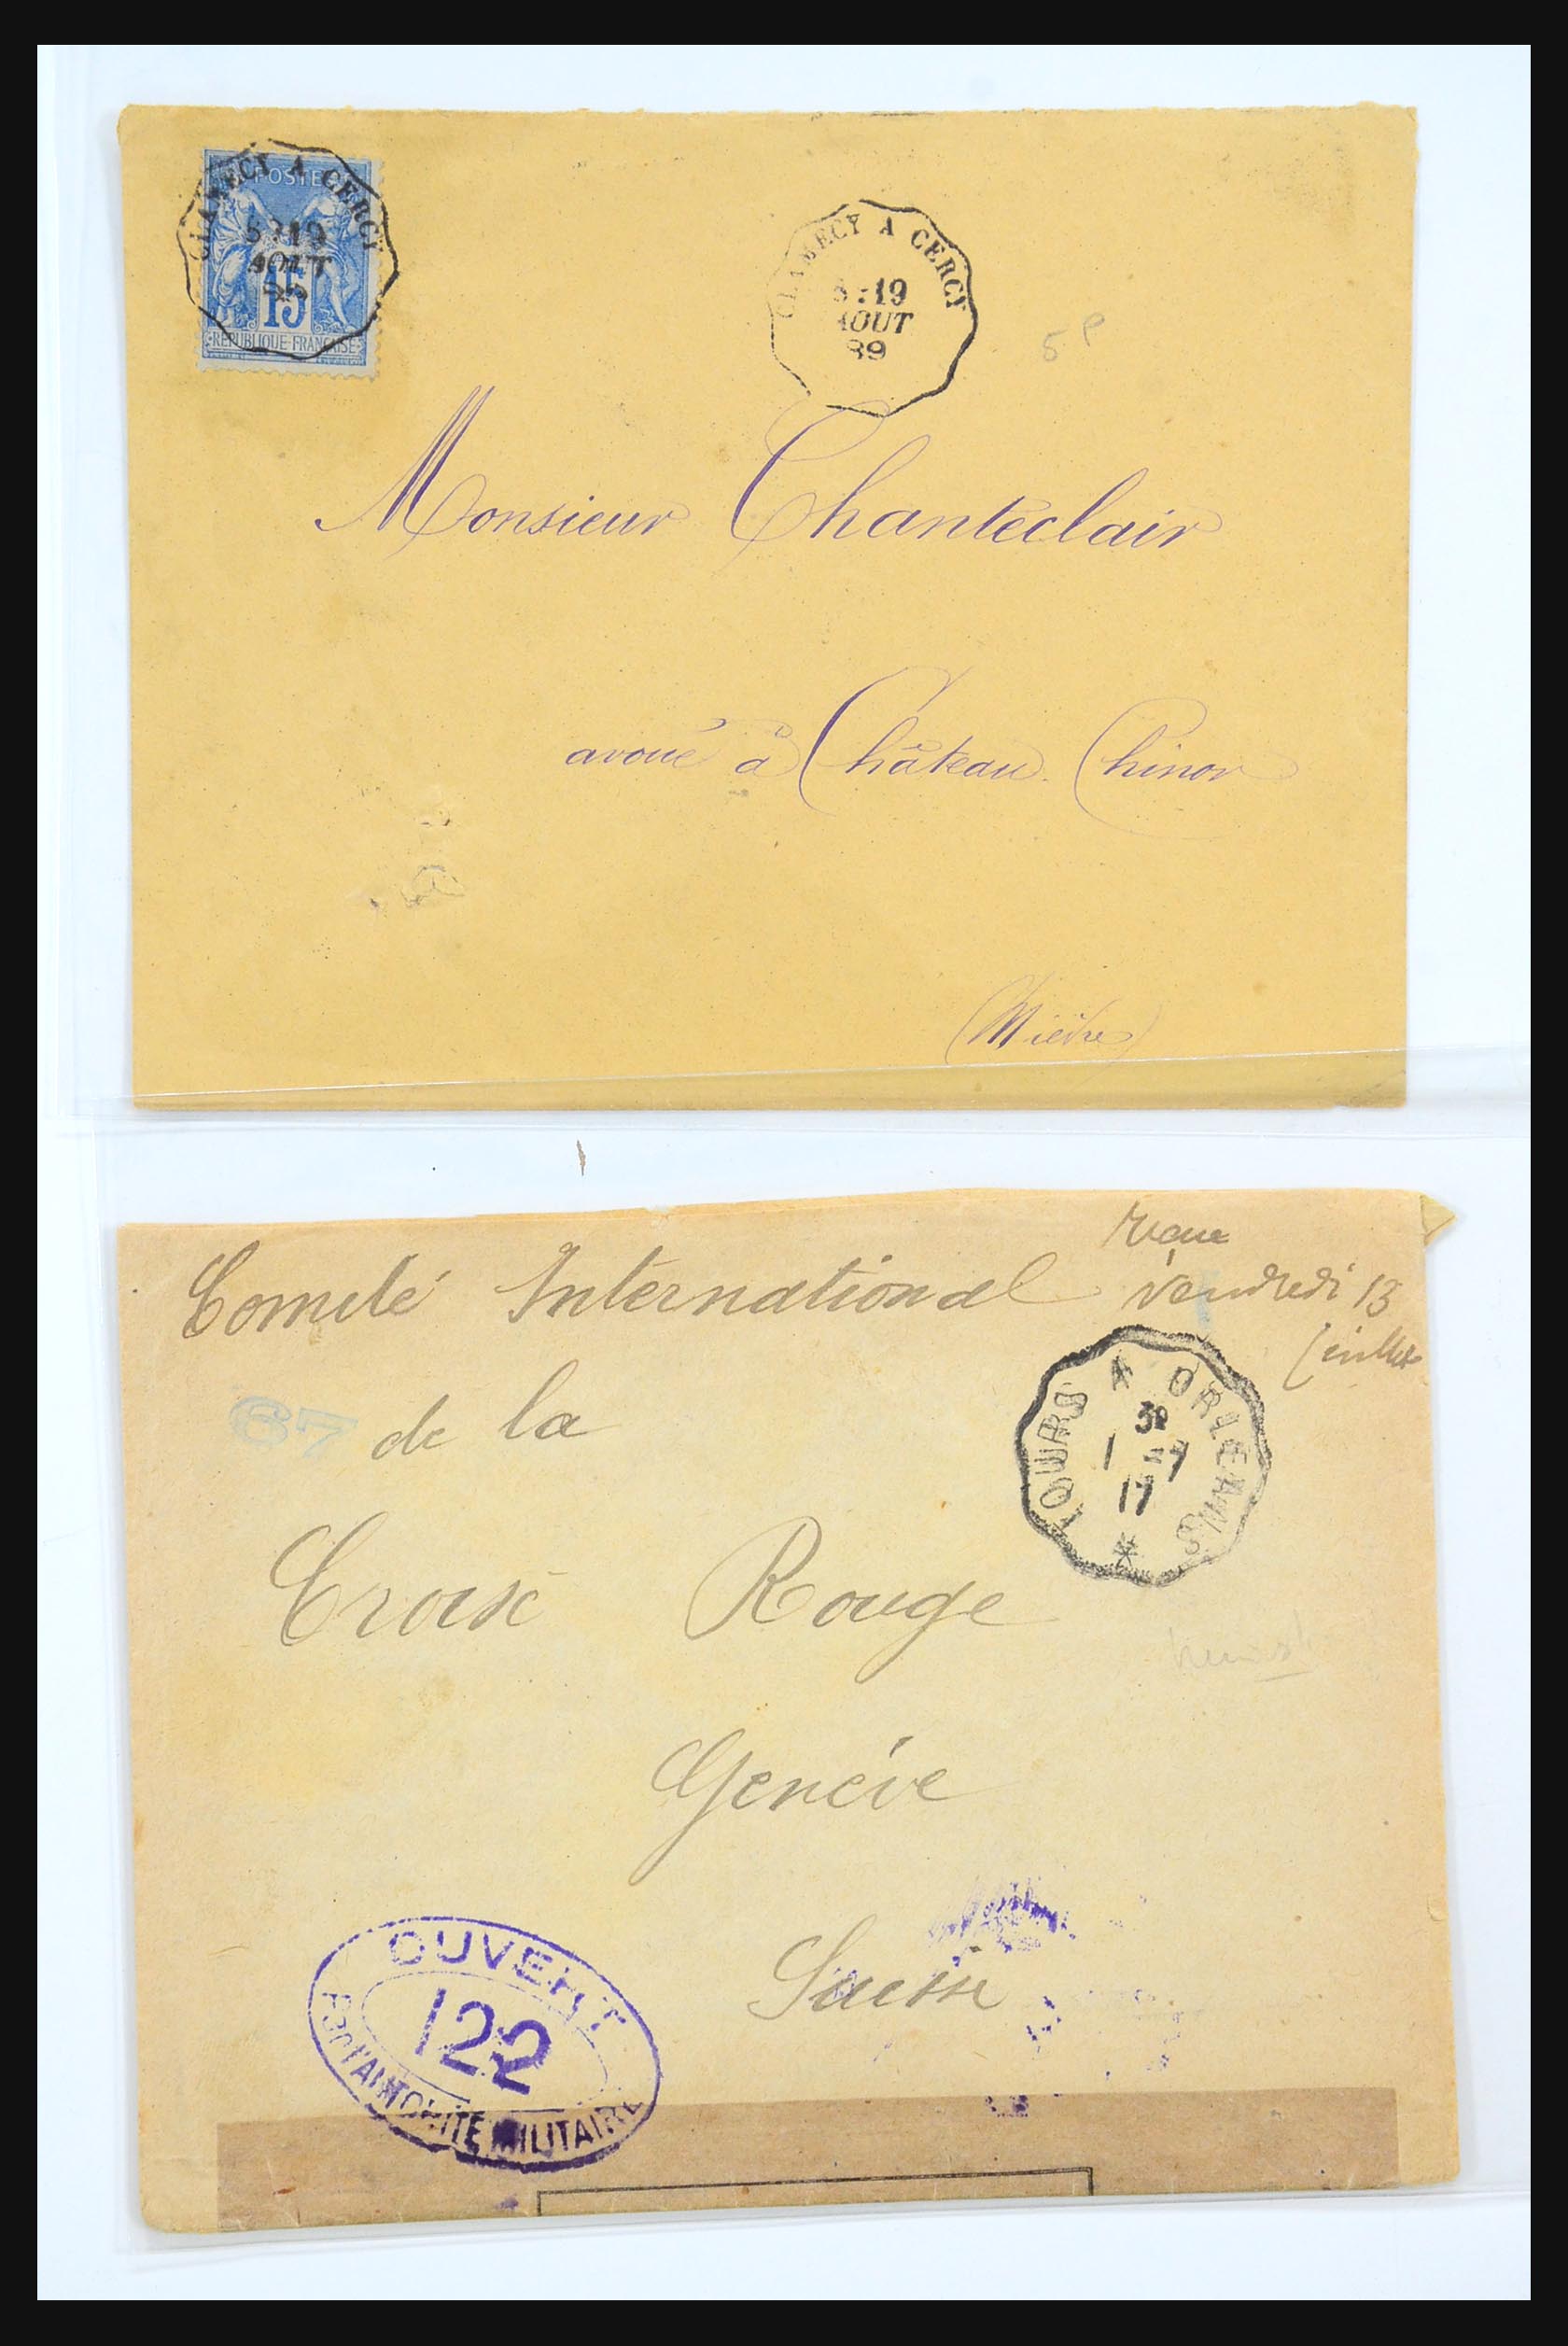 POSTES
15
REPUBLIQUE FRANCAISE
CLAMECY A CERCY
19
AOUT
CLAMECY A CERCY
19
AOUT
89
5 P
Monsieur Chanteclair
avoué à Château Chinon
(Nièvre)
Comité International
vendredi 13
juillet
67
de la
TOURS A ORLEANS
1 -7
17
Croise Rouge
Genève
Suisse
OUVERT
122
Par l'AUTORITÉ MILITAIRE